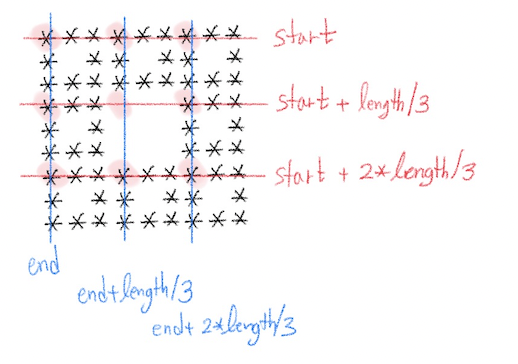 start
start + length/3
start + 2*length/3
end
end+length/3
end+ 2*length/3